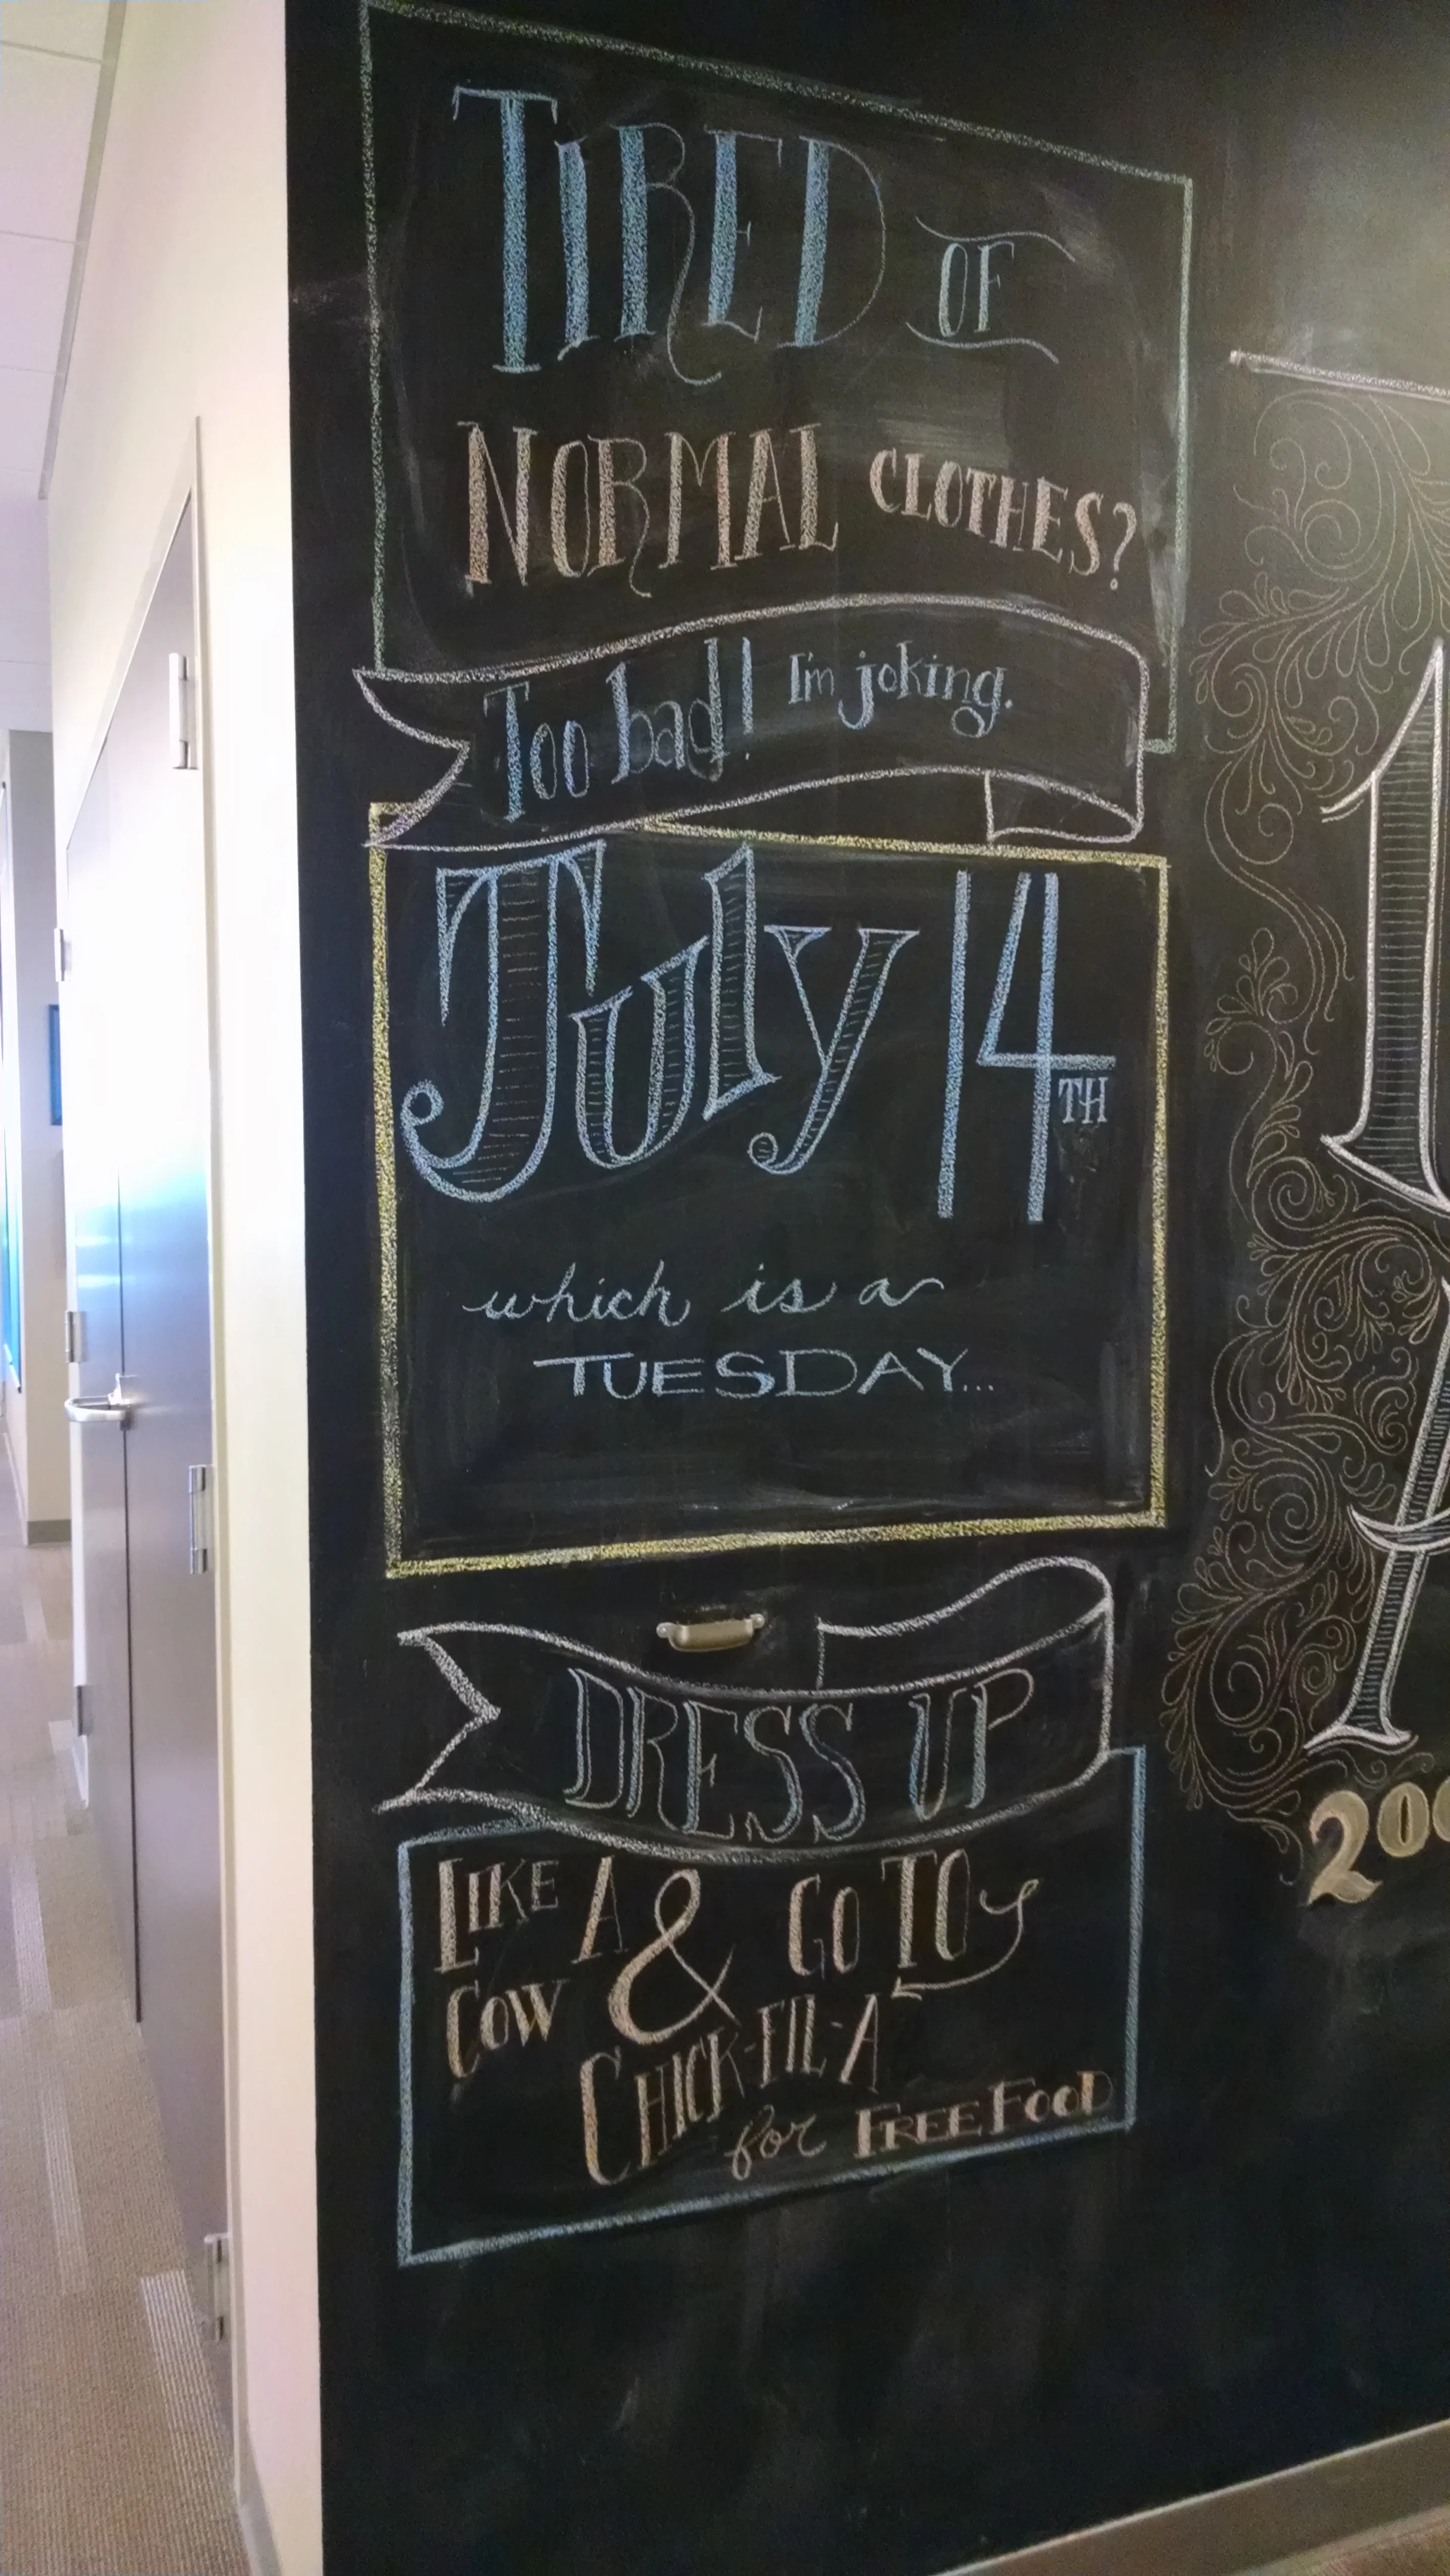 TIRED OF
NORMAL CLOTHES?
Too bad! I'm joking.
July 14TH
which is a
TUESDAY...
DRESS UP
LIKE A & GO TO
COW
CHICK-FIL-A
for FREE FOOD